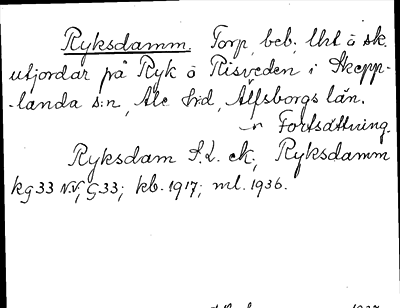 Ryksdamm. Torp beb; Uht å sk.
utjordar på Ryk å Risveden i Skepp-
-landa s:n, Ale hrd, Älfsborgs län.
Fortsättning.
Ryksdam S.L. ek; Ryksdamm
kg 33 N.V, G33; kb. 1917; ml. 1936.